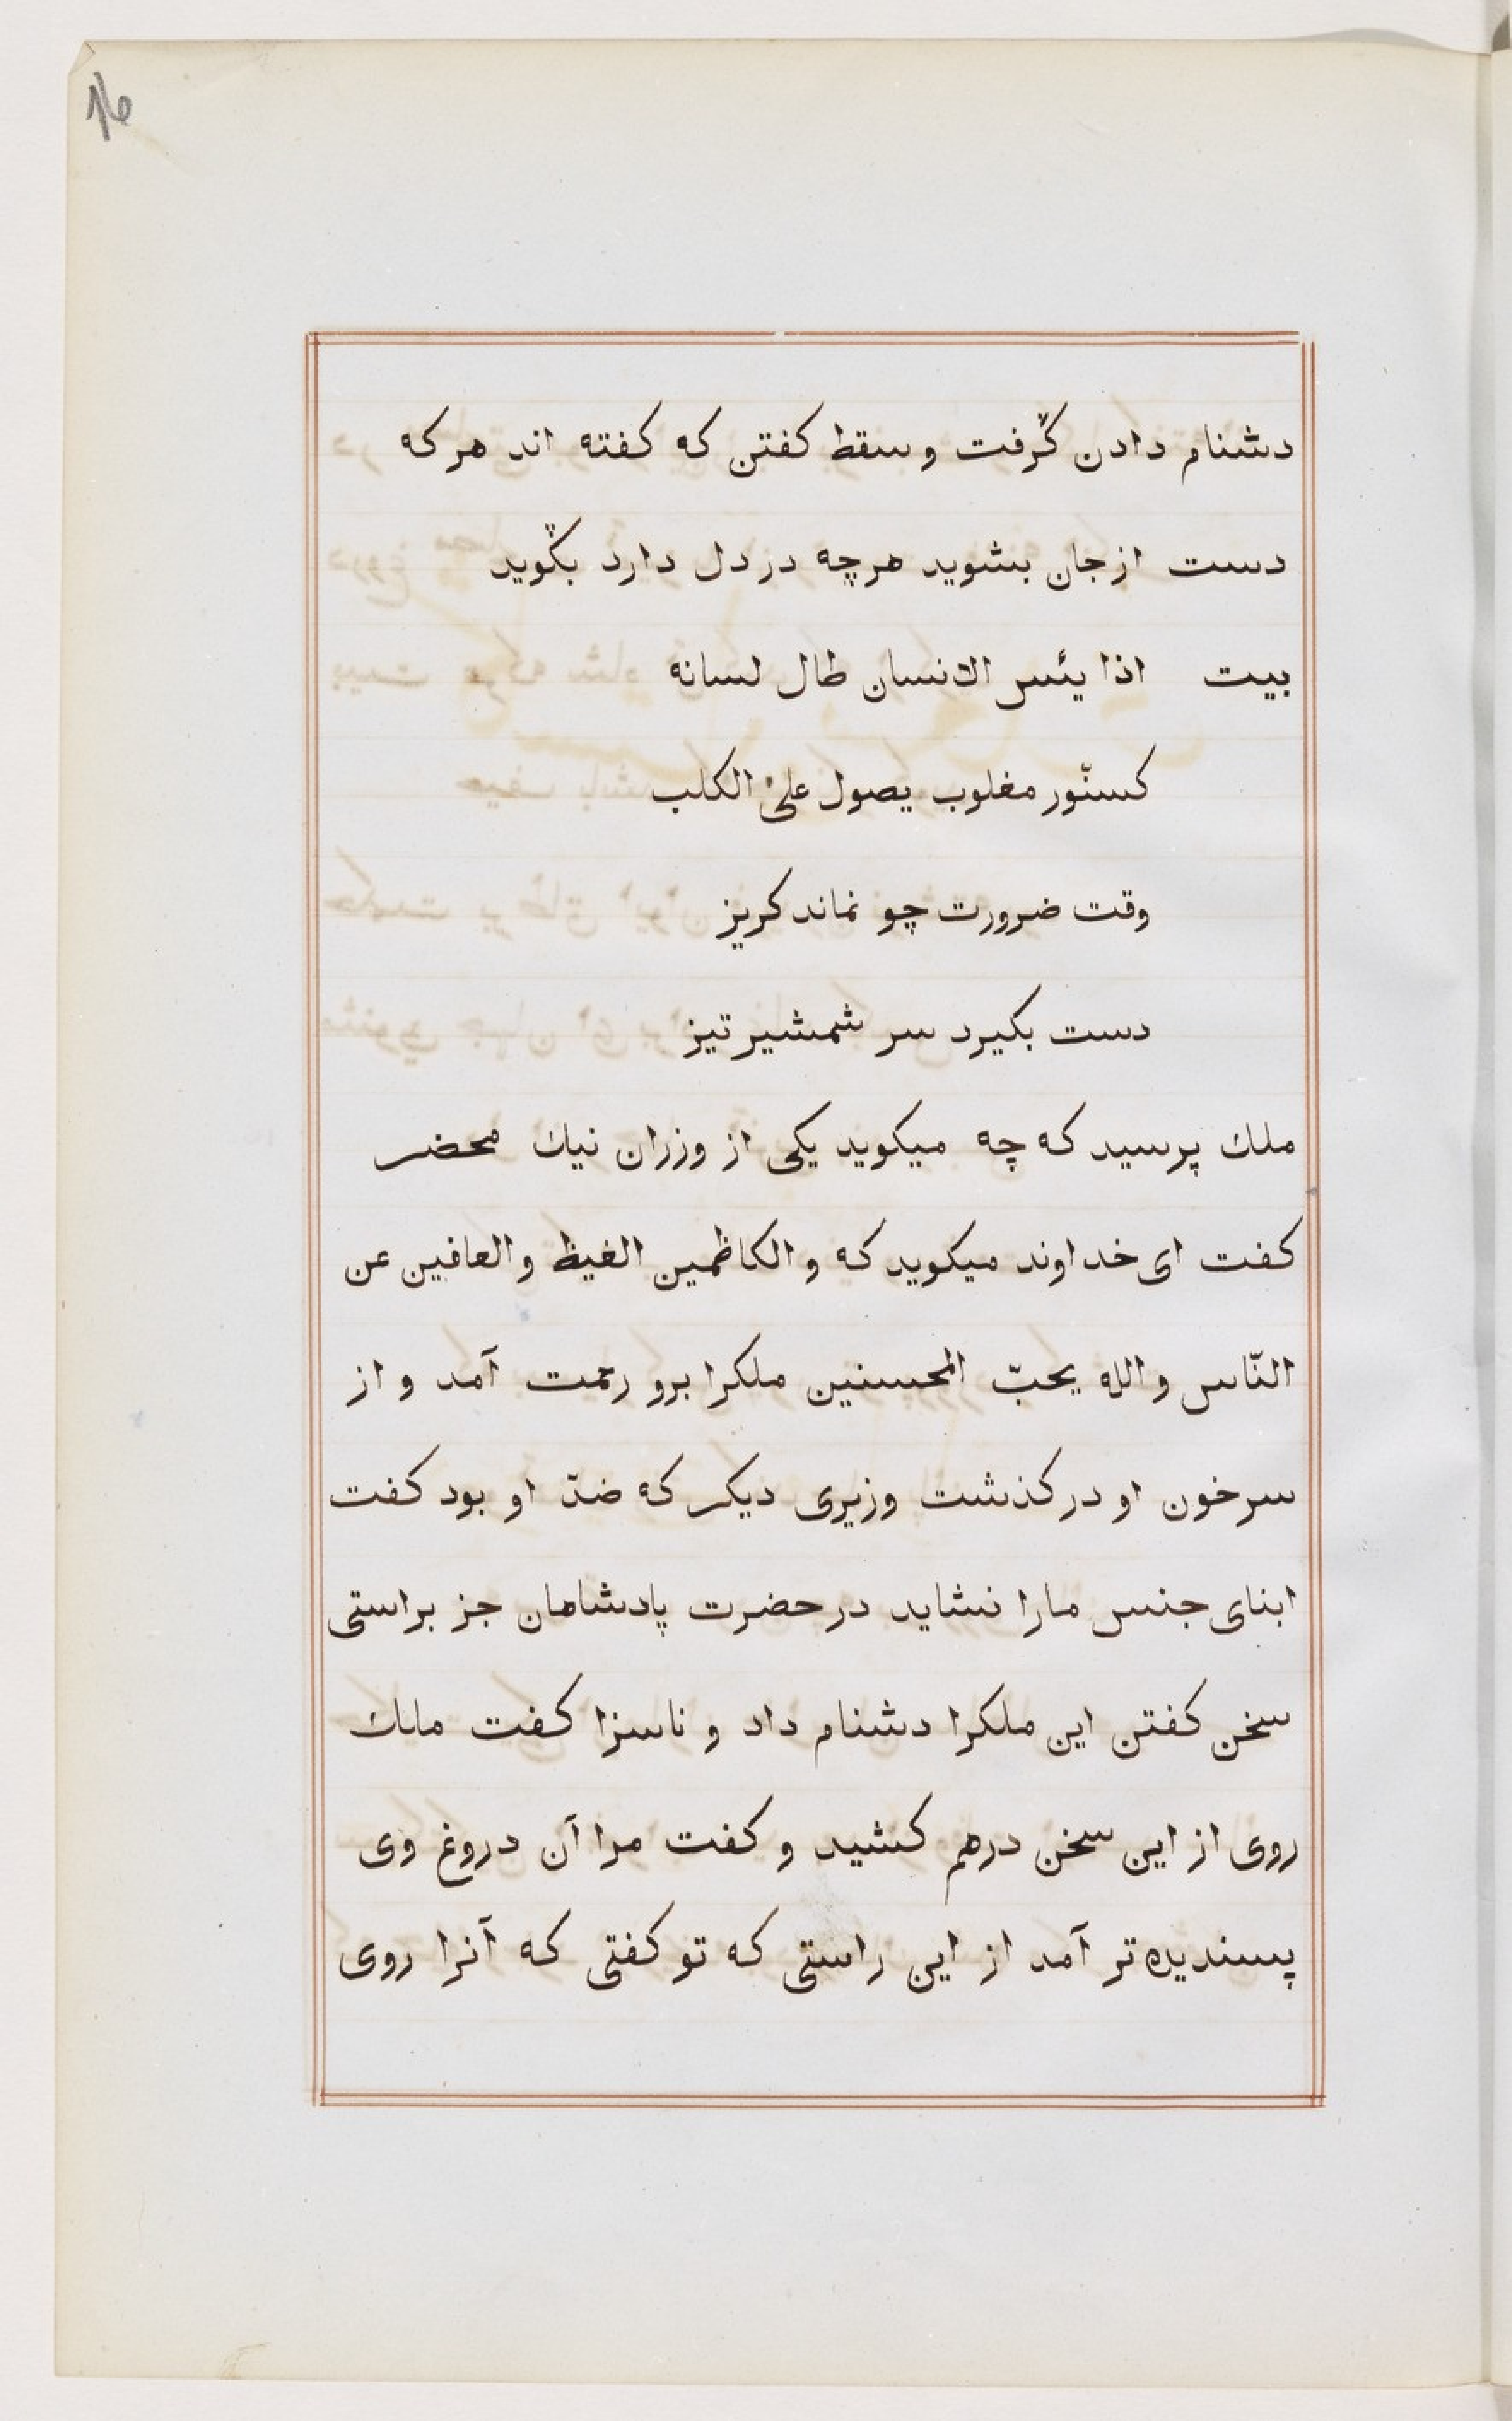 16
دشنام دادن گرفت و سقط کفتن که کفته اند هر که
دست از جان بشوید هرچه در دل دارد بگوید
بیت اذا یئس الانسان طال لسانه
کسنّور مغلوب یصول علی الکلب
وقت ضرورت چو نماند کریز
دست بکیرد سر شمشیر تیز
ملك پرسید که چه میکوید یکی از وزران نیك محضر
کفت ای خداوند میکوید که والکاظمین الغیظ والعافین عن
النّاس والله یحبّ المحسنین ملکرا برو رحمت آمد و از
سر خون او در کذشت وزیری دیکر که ضدّ او بود کفت
ابنای جنس مارا نشاید در حضرت پادشاهان جز براستی
سخن کفتن این ملکرا دشنام داد و ناسزا کفت ملك
روی از این سخن درهم کشید و کفت مرا آن دروغ وی
پسندیده تر آمد از این راستی که تو کفتی که آنرا روی